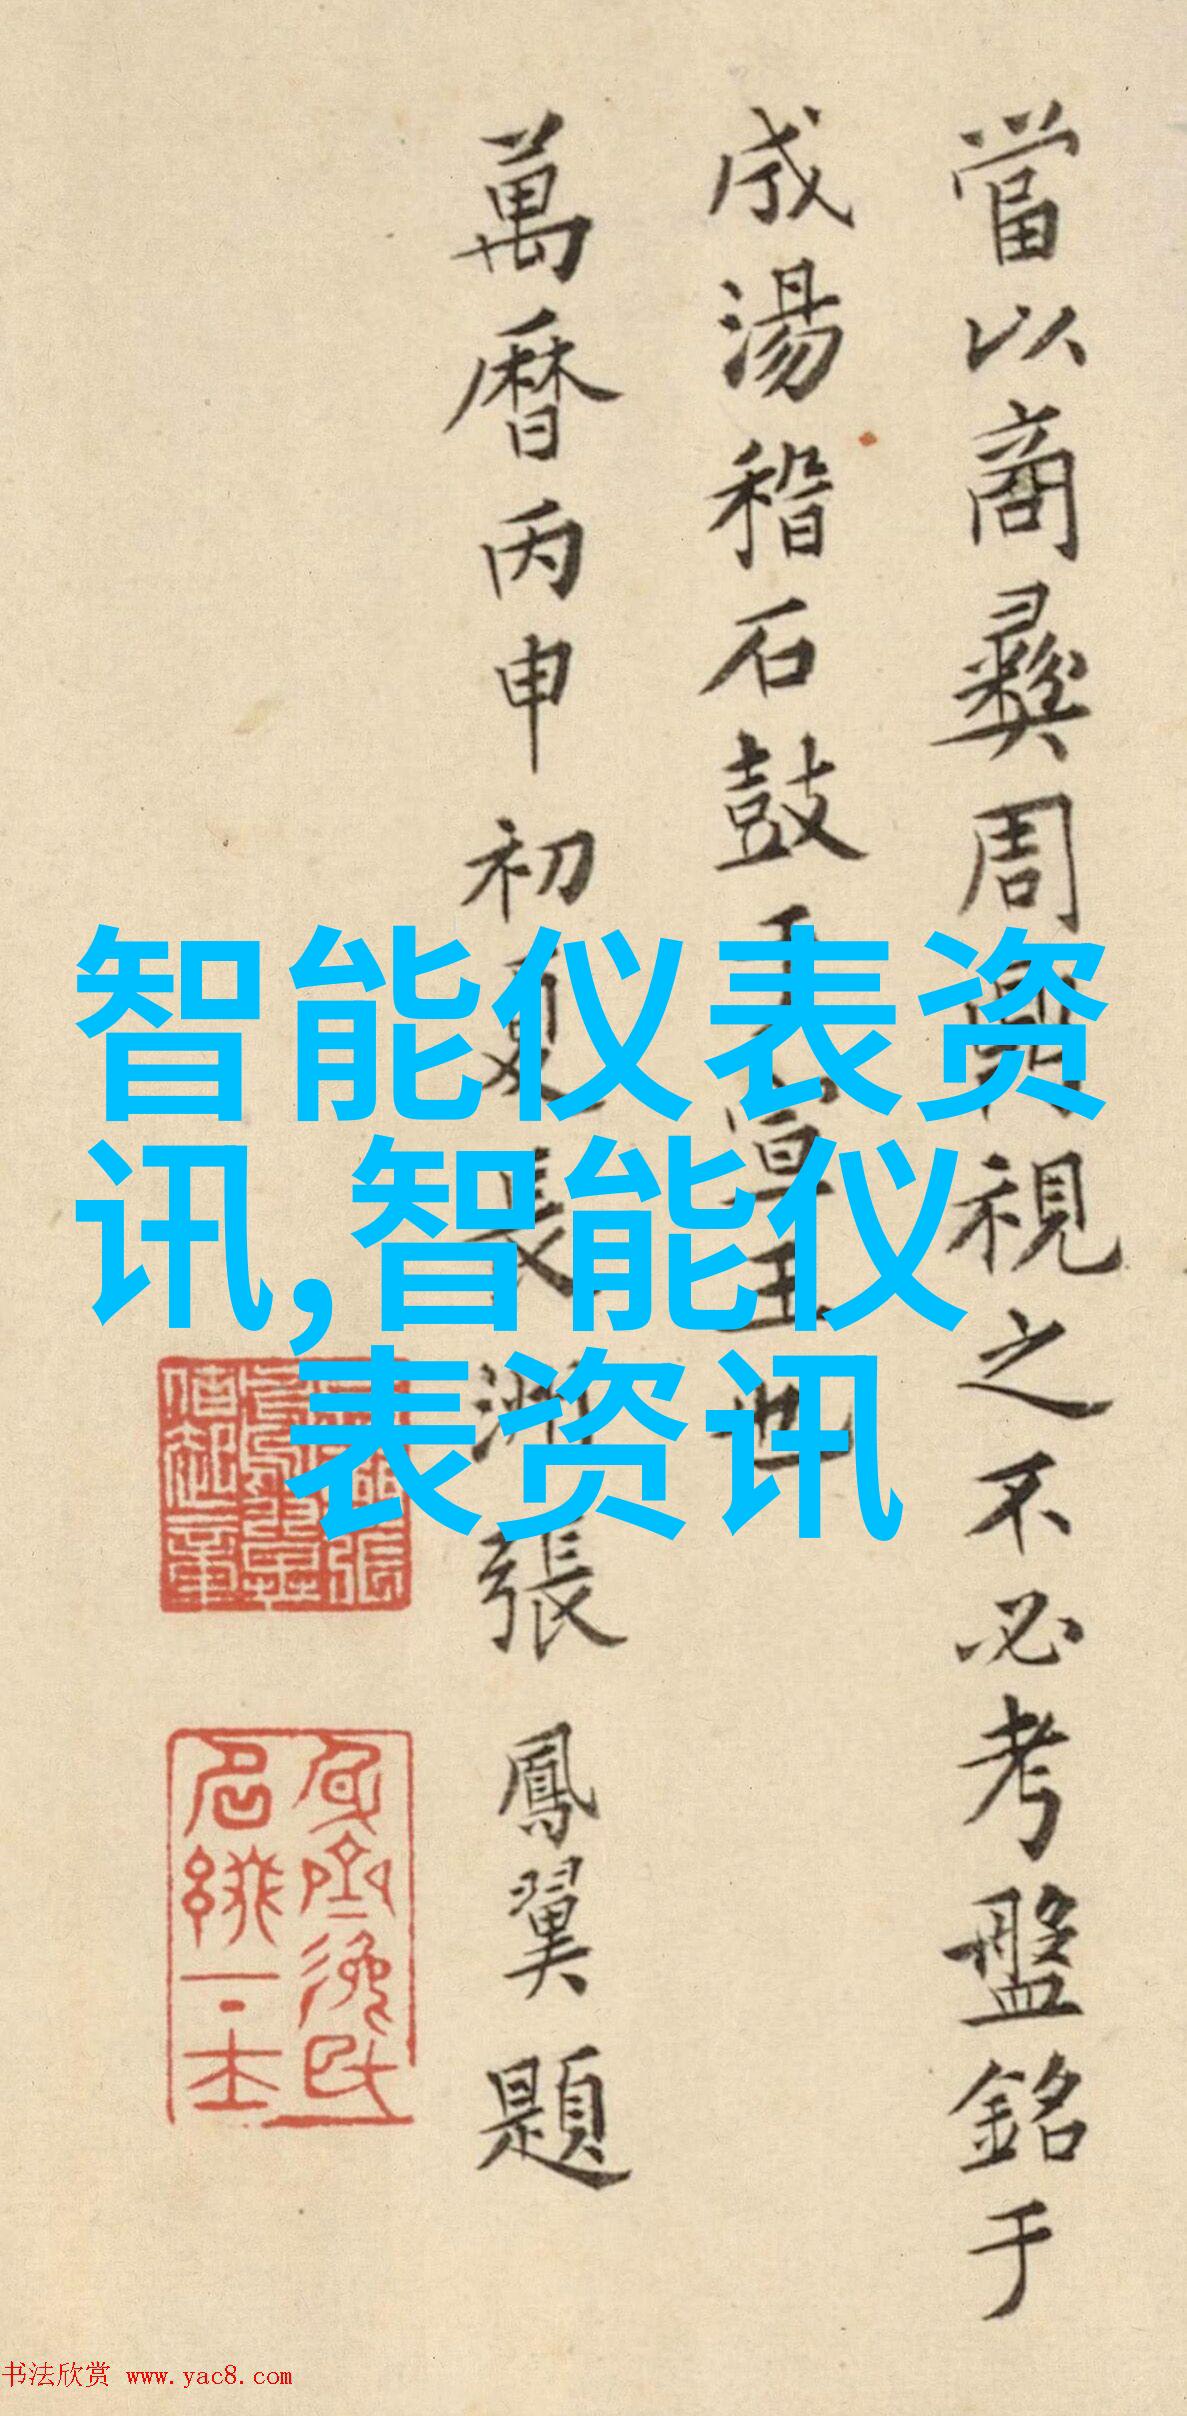 當以商彝周鼎視之不必考盤銘于
成湯稽石鼓于宣王也
萬曆丙申初夏長洲張鳳翼題
智能仪表资
讯,智能仪
表资讯
书法欣赏 www.yac8.com